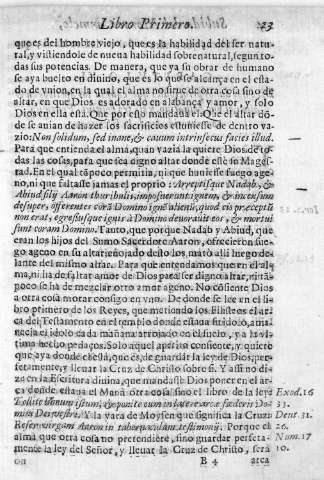 Libro Primero. 23
que es del hombre viejo, que es la habilidad del ser natu-
ral, y vistiendole de nueua habilidad sobrenatural, segun to-
das sus potencias. De manera, que ya su obrar de humano
se aya buelto en diuino, que es lo que se alcança en el esta-
do de vnion, en la qual el alma no sirue de otra cosa sino de
altar, en que Dios es adorado en alabança y amor, y solo
Dios en ella està. Que por esso mandaua el que el altar dõ-
de se auian de hazer los sacrificios estuuiesse de dentro va-
zio: Non solidum, sed inane, & cauum intrinsecus facies illud.
Para que entienda el alma, quan vazia la quiere Dios de to
das las cosas, para que sea digno altar donde estè su Mages-
tad. En el qual tãpoco permitia, ni que huuiesse fuego age-
no, ni que faltasse jamas el proprio: Arreptisque Nadab, &
Abiud filij Aaron thuribulis, imposuerunt ignem, & incensum
desuper, offerentes corã Domino ignẽ alienũ, quod eis præceptũ
non erat, egressusque ignis à Domino deuorauit eos, & mortui
sunt coram Domino. Tanto, que porque Nadab y Abiud, que
eran los hijos del Sumo Sacerdote Aaron, ofrecieron fue-
go ageno en su altar, enojado desto los matò alli luego de-
lante del mismo altar. Para que entendamos que en el al-
ma, ni ha de faltar amor de Dios para ser digno altar, ni tã-
poco se ha de mezclar otro amor ageno. No cõsiente Dios
a otra cosa morar consigo en vno. De donde se lee en el li-
bro primero de los Reyes, que metiendo los Filisteos el ar-
ca del Testamento en el templo donde estaua su idolo, ama-
necia el idolo cada mañana arrojado en el suelo, y a la vl-
tima hecho pedaços. Solo aquel apetito consiente, y quiere
que aya donde el està, que es, de guardar la ley de Dios per-
fetamente, y lleuar la Cruz de Christo sobre si. Y assi no di-
ze en la Escritura diuina, que mandasse Dios poner en el ar-
ca donde estaua el Manà otra cosa, sino el libro de la ley:
Tollite librum istum, & ponite eum in latere arcæ fœderis Do-
mini Dei vestri. Y la vara de Moysen que significa la Cruz:
Refer virgam Aaron in tabernaculum testimonij. Porque el
alma que otra cosa no pretendiere, sino guardar perfeta-
mente la ley del Señor, y lleuar la Cruz de Christo, serà
B 4 arca
Exod. 16
33.
Deut. 31.
26.
Num. 17
10.